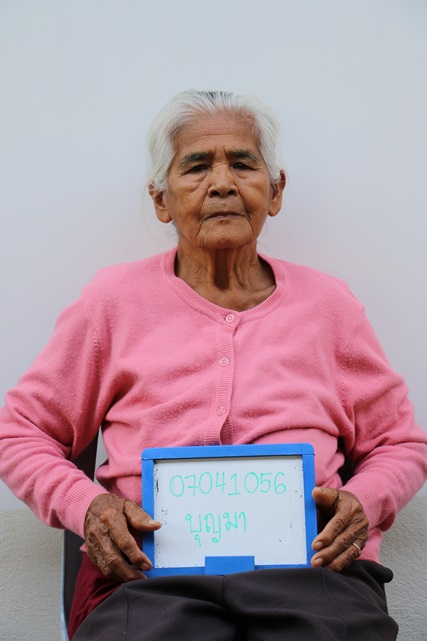 07041056
บุญมา